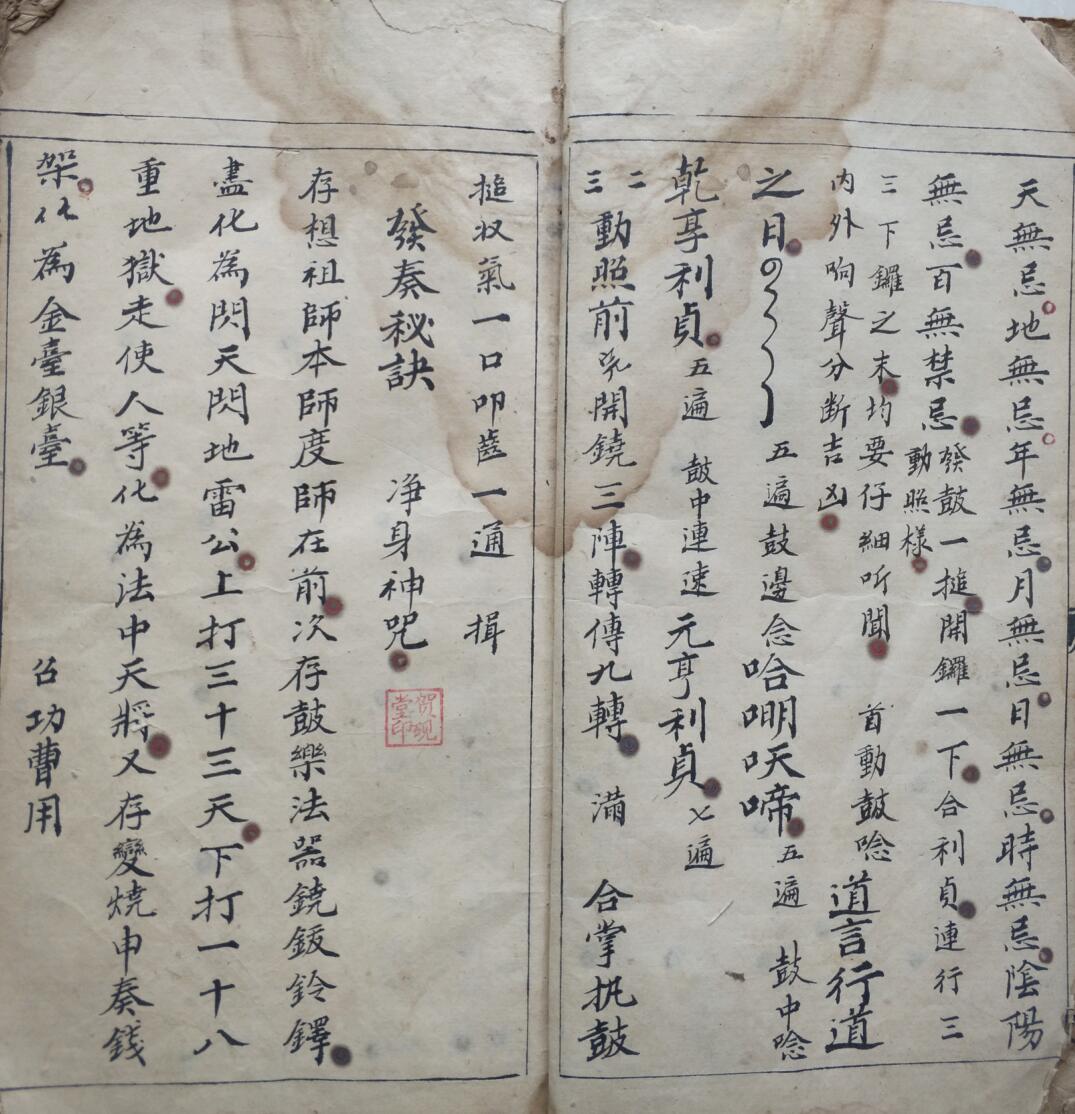 天無忌地無忌年無忌月無忌日無忌時無忌陰陽
無忌百無禁忌
發鼓一搥開鑼一下合利貞連行三
動照樣
三下鑼之末均要仔細听聞 首動鼓唸
内外响聲分断吉凶 道言行道
之日 五遍鼓邊念哈𠰻㕭啼五遍 鼓中唸
乾亨利貞五遍 鼓中連速元亨利貞七遍
二
三
動照前 開鐃三陣轉傳九轉 滿 合掌执鼓
搥收氣一口叩齒一通 揖
發奏秘訣 净身神咒
賀硯堂印
存想祖師本師度師在前次存鼓樂法器鐃鈸鈴鐸
盡化為閃天閃地雷公上打三十三天下打一十八
重地獄走使人等化為法中天將又存變燒申奏錢
架化為金臺銀臺 召功曹用